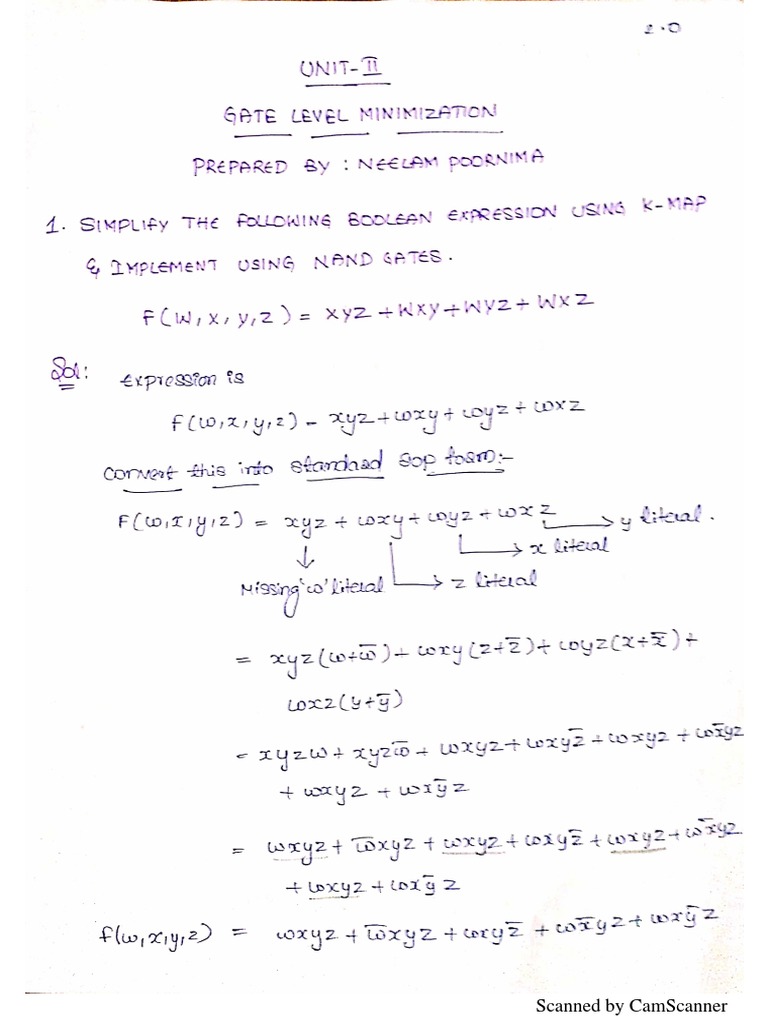 2.0
UNIT-II
GATE LEVEL MINIMIZATION
PREPARED BY : NEELAM POORNIMA
1. SIMPLIFY THE FOLLOWING BOOLEAN EXPRESSION USING K-MAP
& IMPLEMENT USING NAND GATES.
F(W,X,Y,Z) = XYZ + WXY + WYZ + WXZ
Sol: Expression is
F(w,x,y,z) = xyz + wxy + wyz + wxz
Convert this into standard SOP form:-
F(w,x,y,z) = xyz + wxy + wyz + wxz → y literal.
→ x literal
Missing 'w' literal → z literal
= xyz(w+w̅) + wxy(z+z̅) + wyz(x+x̅) +
wxz(y+y̅)
= xyzw + xyzw̅ + wxyz + wxyz̅ + wxyz + wx̅yz
+ wxyz + wxy̅z
= wxyz + w̅xyz + wxyz + wxyz̅ + wxyz + wx̅yz
+ wxyz + wxy̅z
f(w,x,y,z) = wxyz + w̅xyz + wxyz̅ + wx̅yz + wxy̅z
Scanned by CamScanner